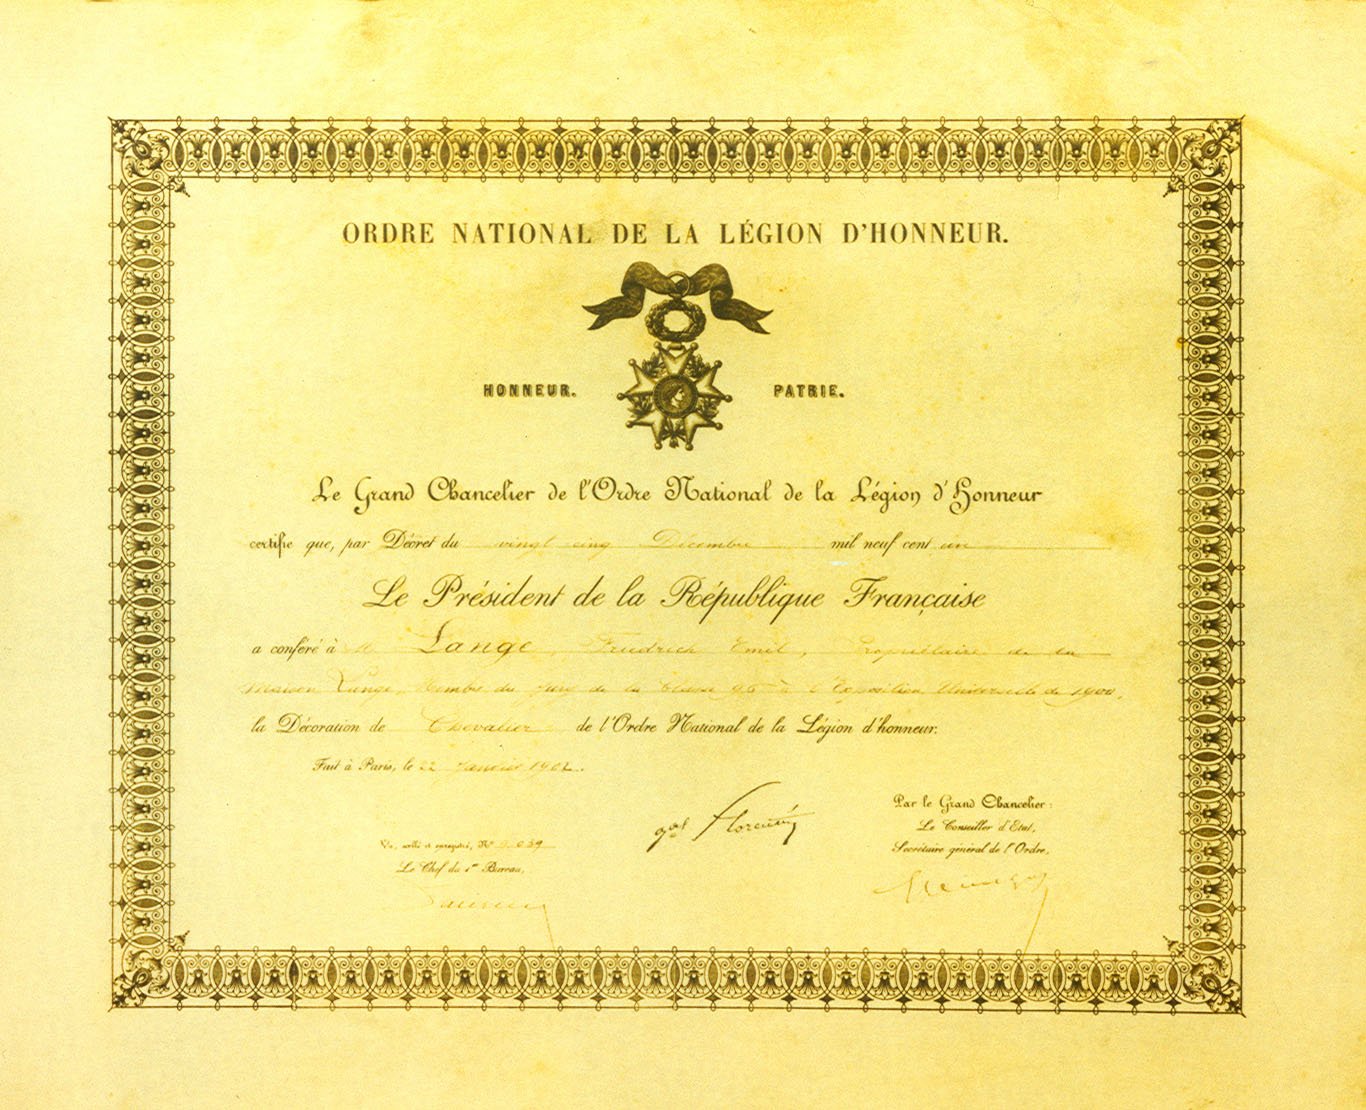 ORDRE NATIONAL DE LA LÉGION D'HONNEUR.
HONNEUR. PATRIE.
Le Grand Chancelier de l'Ordre National de la Légion d'Honneur
certifie que, par Décret du vingt cinq Décembre mil neuf cent un
Le Président de la République Française
a conféré à M Lange, Friedrich Emil, Propriétaire de la
Maison Lange, Membre du Jury de la Classe 96 à l'Exposition Universelle de 1900,
la Décoration de Chevalier de l'Ordre National de la Légion d'honneur.
Fait à Paris, le 22 Janvier 1902.
Par le Grand Chancelier:
Le Conseiller d'Etat,
Secrétaire général de l'Ordre,
gal Florentin
Vu, scellé et enregistré, N°
Le Chef du 1er Bureau,